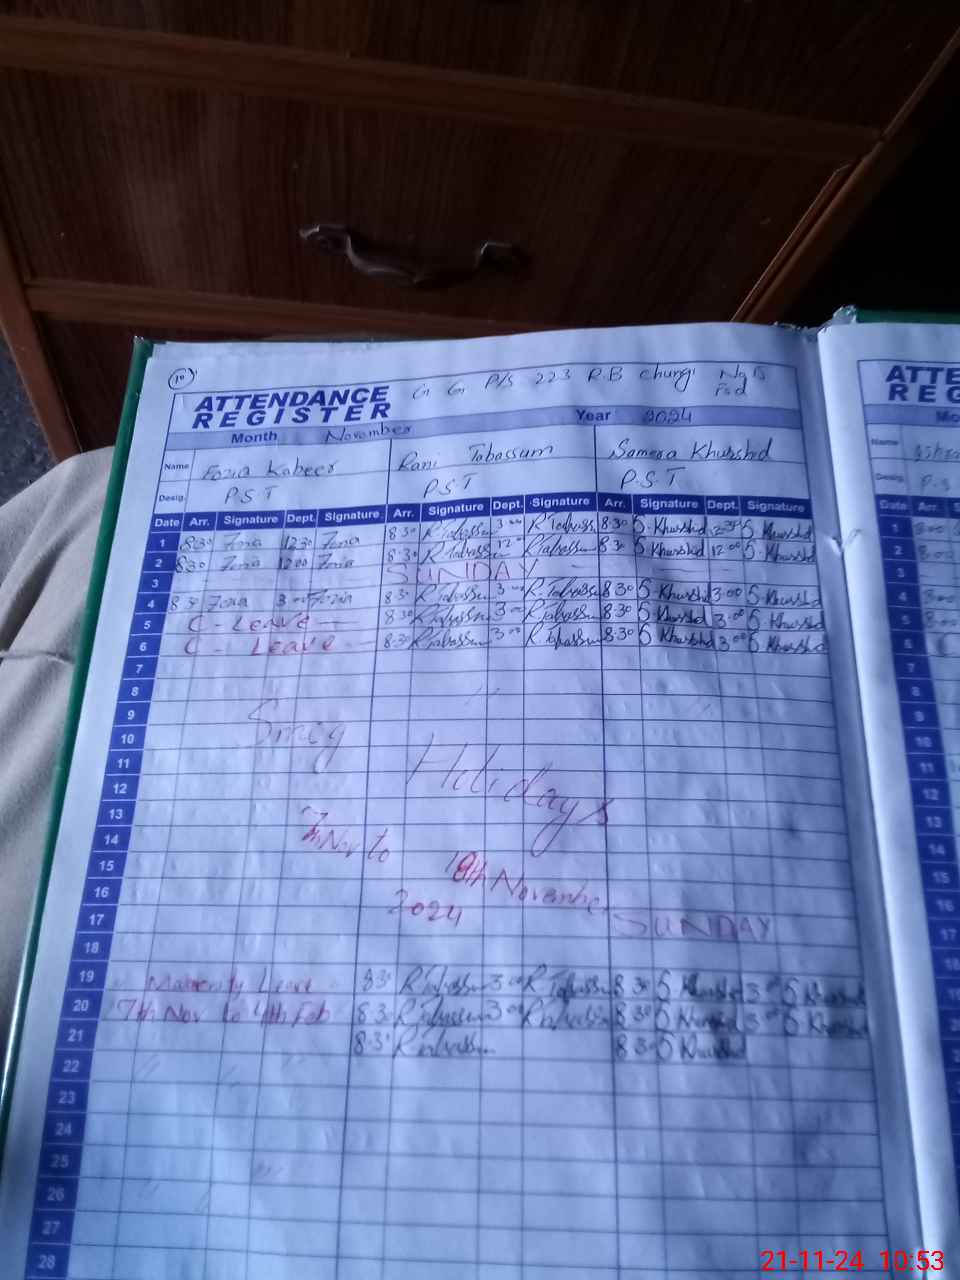 10
ATTENDANCE REGISTER G G P/S 223 R.B Chungi No 5 Fsd
Month November Year 2024
Name Fozia Kabeer Rani Tabassum Samera Khurshid
Desig. P.S.T P.S.T P.S.T
Date Arr. Signature Dept. Signature Arr. Signature Dept. Signature Arr. Signature Dept. Signature
1 8:30 Fozia 12:30 Fozia 8:30 R Tabassum 3:00 R Tabassum 8:30 S Khurshid S Khurshid
2 8:30 Fozia 12:00 Fozia 8:30 R Tabassum 12:00 R Tabassum 8:30 S Khurshid 12:00 S Khurshid
3 SUNDAY
4 8:30 Fozia 3:00 Fozia 8:30 R Tabassum 3:00 R Tabassum 8:30 S Khurshid 3:00 S Khurshid
5 C - Leave 8:30 R Tabassum 3:00 R Tabassum 8:30 S Khurshid 3:00 S Khurshid
6 C - Leave 8:30 R Tabassum 3:00 R Tabassum 8:30 S Khurshid 3:00 S Khurshid
7
8
9 Smog
10
11 Holidays
12
13
14 7th Nov to
15 18th November
16 2024
17 SUNDAY
18
19 Maternity Leave 8:30 R Tabassum 3:00 R Tabassum 8:30 S Khurshid 3:00 S Khurshid
20 7th Nov to 4th Feb 8:30 R Tabassum 3:00 R Tabassum 8:30 S Khurshid 3:00 S Khurshid
21 8:30 R Tabassum 8:30 S Khurshid
22
23
24
25
26
27
28
ATTE
RE
Mo
Name
Desig. P.S
Date Arr.
1 8:00
2 8:00
3
4 8:00
5 8:00
6
7
8
9
10
11
12
13
14
15
16
17
21-11-24 10:53